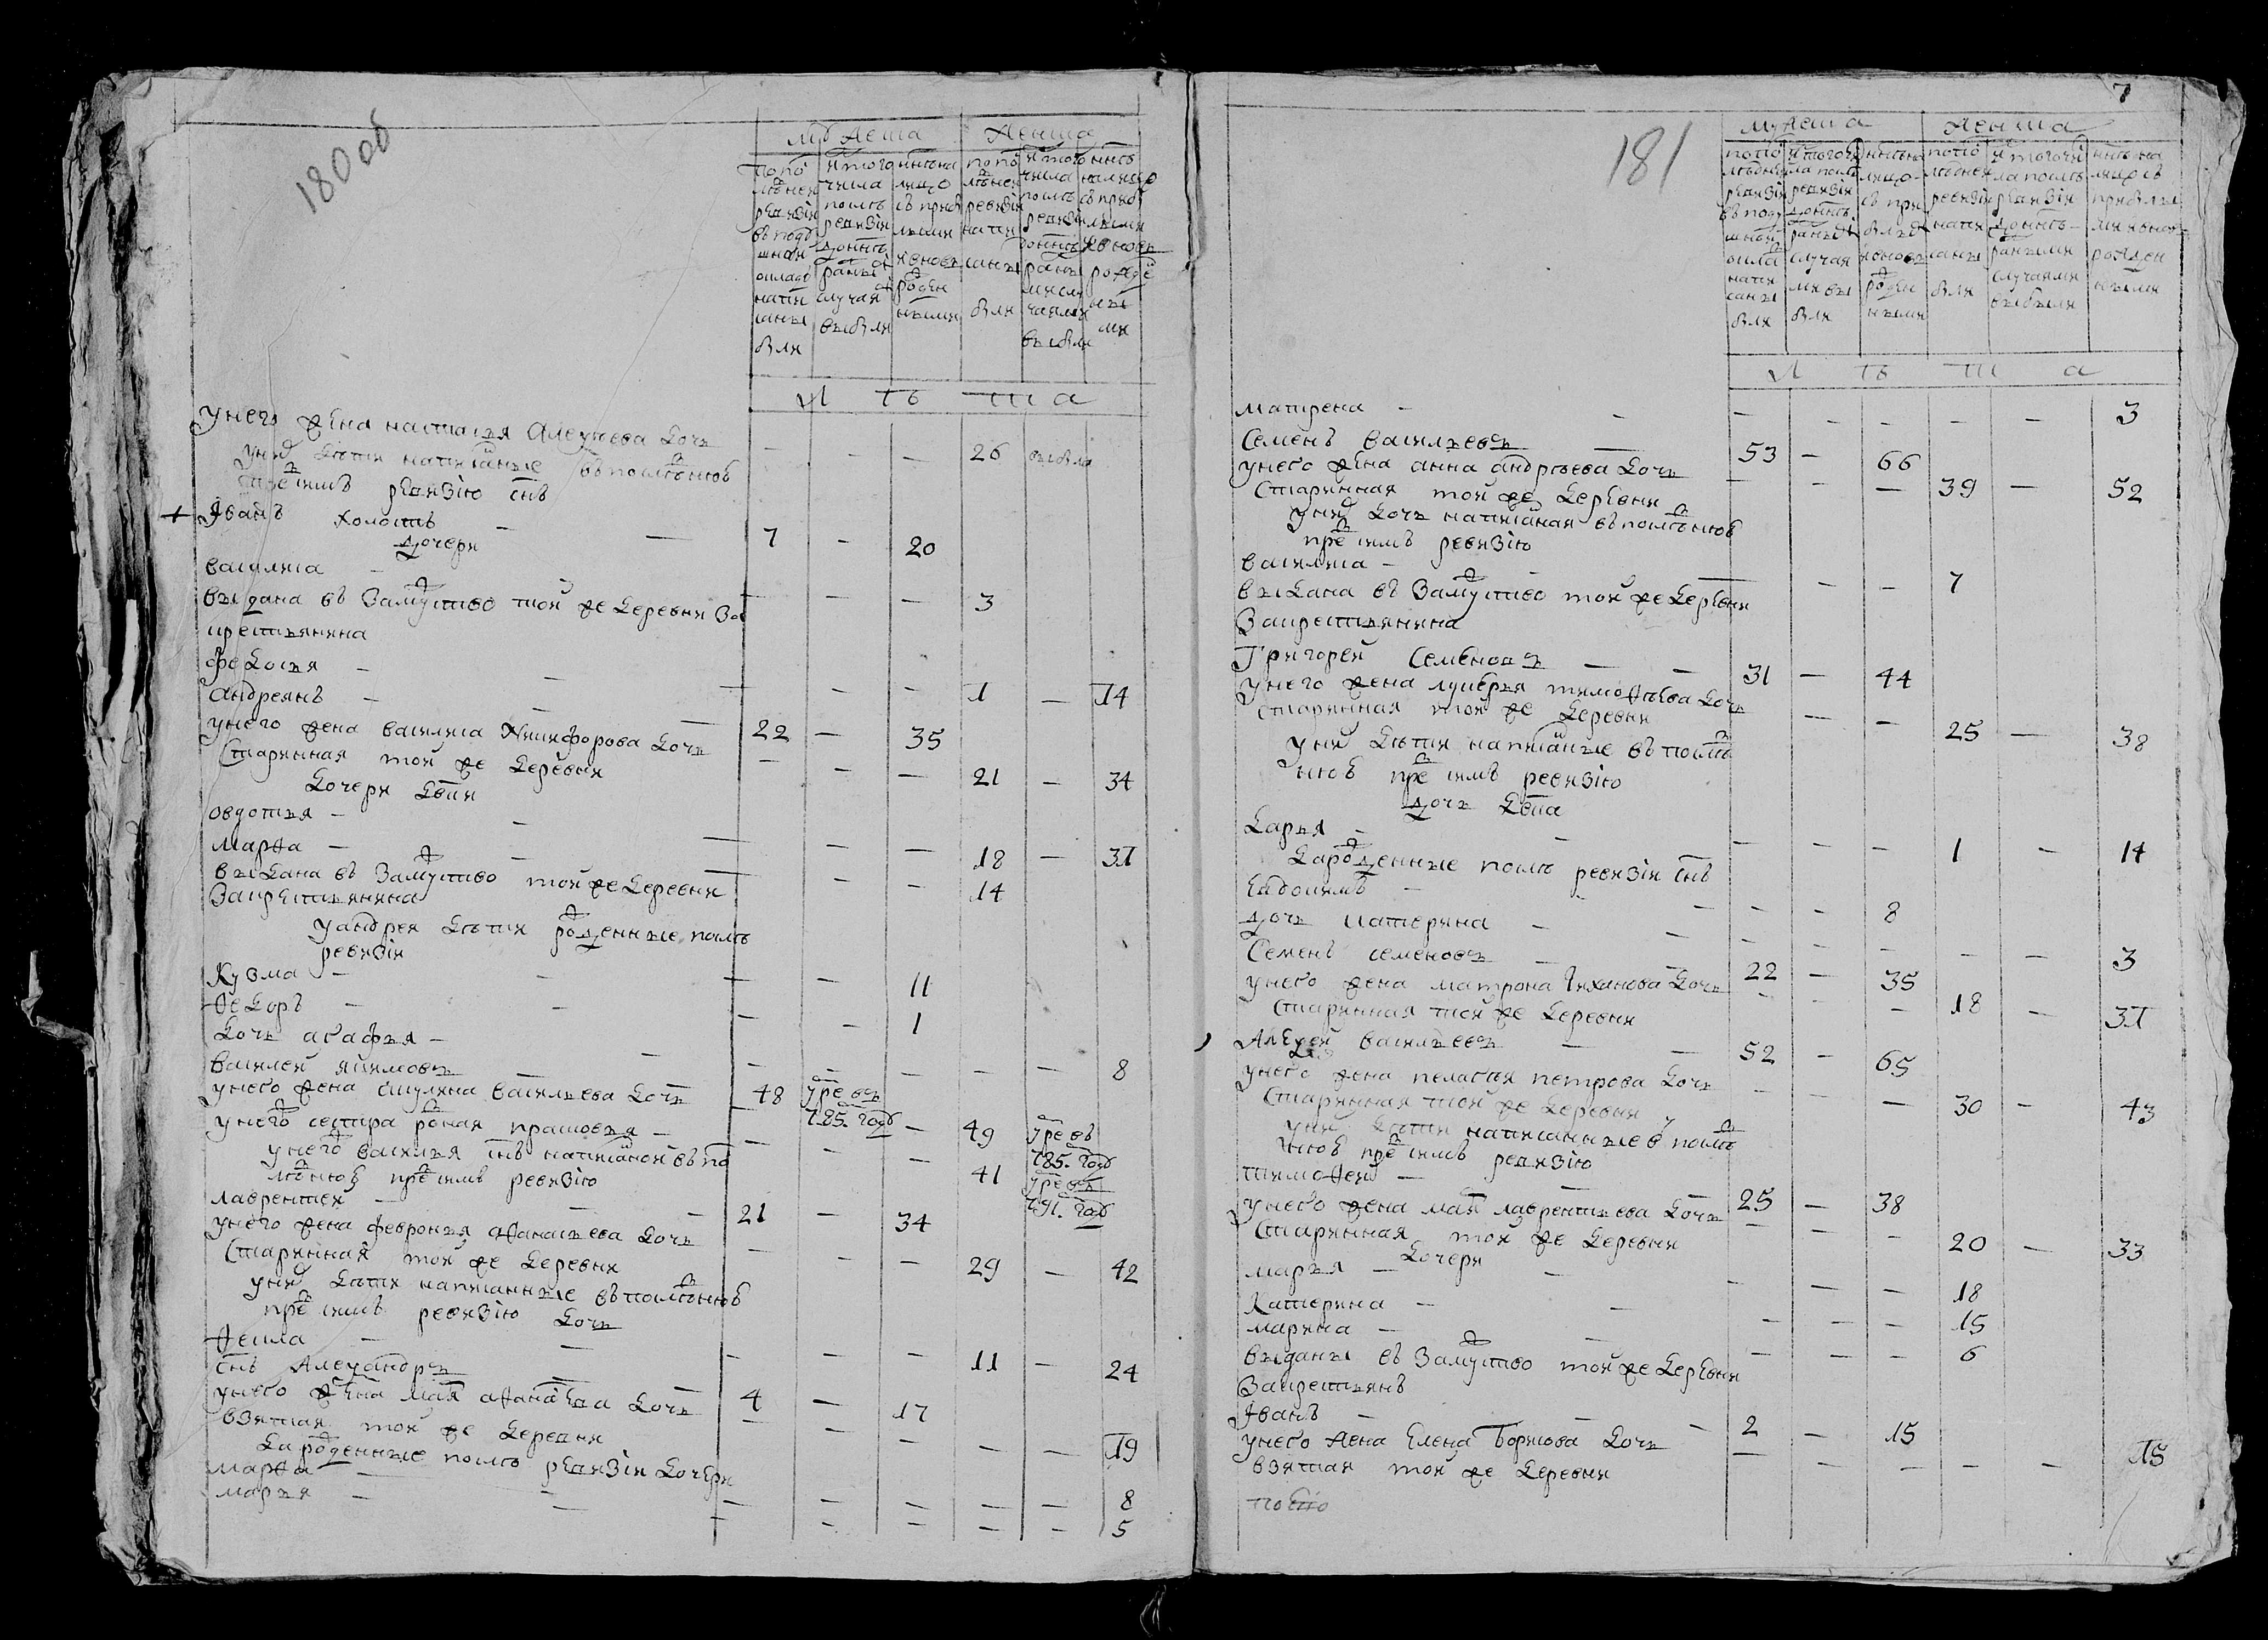 180 об
мужеска женска
по по следней ревизии в подушной оклад написаны были
из того числа после ревизии до ныне разными случаи выбыли
ныне на лицо с прибылыми и вновь рожденными
по последней ревизии написаны были
из того числа после ревизии до ныне разными случаями выбыли
ныне на лицо с прибылыми и вновь рожденными
Л Ѣ т а
у него жена настасья Алексеева дочь — — — 26 выбыла
у них дети написанные в последнюю
пред сим ревизию снъ
Иванъ холостъ — 7 — 20
дочери
василиса — — — — 3
выдана въ замужство той же деревни за
крестьянина
федосья — — — — 1 — 14
андреянъ — 22 — 35
у него жена василиса Никифорова дочь — — — 21 — 34
старинная той же деревни
дочери девки
овдотья — — — — 18 — 31
марѳа — — — — 14
выдана въ замужство той же деревни
за крестьянина
у андрея дети рожденные после
ревизии
Кузма — — — 11
ѳедоръ — — — 1
дочь агафья — — — — — — 8
василей якимовъ — 48 умре въ 785. году
у него жена акулина васильева дочь — — — 49 умре въ 785. году
у него сестра родная прасковья — — — — 41 умре въ 791. году
у него василья снъ написаной въ по
следнюю пред сим ревизию
лаврентей — 21 — 34
у него жена февронья аѳанасьева дочь — — — 29 — 42
старинная той же деревни
у них дети написанные въ последнюю
пред сим ревизию дочь
ѳекла — — — — 11 — 24
снъ Александръ — 4 — 17
у него жена марья аѳанасьева дочь — — — — — 19
взятая той же деревни
рожденные после ревизии дочери
марѳа — — — — — — 8
марья — — — — — — 5
7
181
мужеска женска
по последней ревизии в подушной оклад написаны были
из того числа после ревизии до ныне разными случаями выбыли
ныне на лицо с прибылыми и вновь рожденными
по последней ревизии написаны были
из того числа после ревизии до ныне разными случаями выбыли
ныне на лицо с прибылыми и вновь рожденными
Л Ѣ т а
матрена — — — — — — 3
Семенъ васильевъ — 53 — 66
у него жена анна андреева дочь — — — 39 — 52
старинная той же деревни
у них дочь написаная въ последнюю
пред сим ревизию
василиса — — — — 7
выдана въ замужство той же деревни
за крестьянина
Григорей Семеновъ — 31 — 44
у него жена лукерья тимоѳеева дочь — — — 25 — 38
старинная той же деревни
у них дети написанные въ послед
нюю пред сим ревизию
дочь девка
дарья — — — — 1 — 14
рожденные после ревизии снъ
Евдокимъ — — — 8
дочь катерина — — — — — — 3
Семенъ семеновъ — 22 — 35
у него жена матрона тиханова дочь — — — 18 — 31
старинная той же деревни
Алексей васильевъ — 52 — 65
у него жена пелагея петрова дочь — — — 30 — 43
старинная той же деревни
у них дети написанные в послед
нюю пред сим ревизию
тимоѳей — 25 — 38
у него жена марья лаврентьева дочь — — — 20 — 33
старинная той же деревни
дочери
марья — — — — 18
Катерина — — — — 15
марина — — — — 6
выданы въ замужство той же деревни
за крестьянъ
Иванъ — 2 — 15
у него жена Елена борисова дочь — — — — — 15
взятая той же деревни